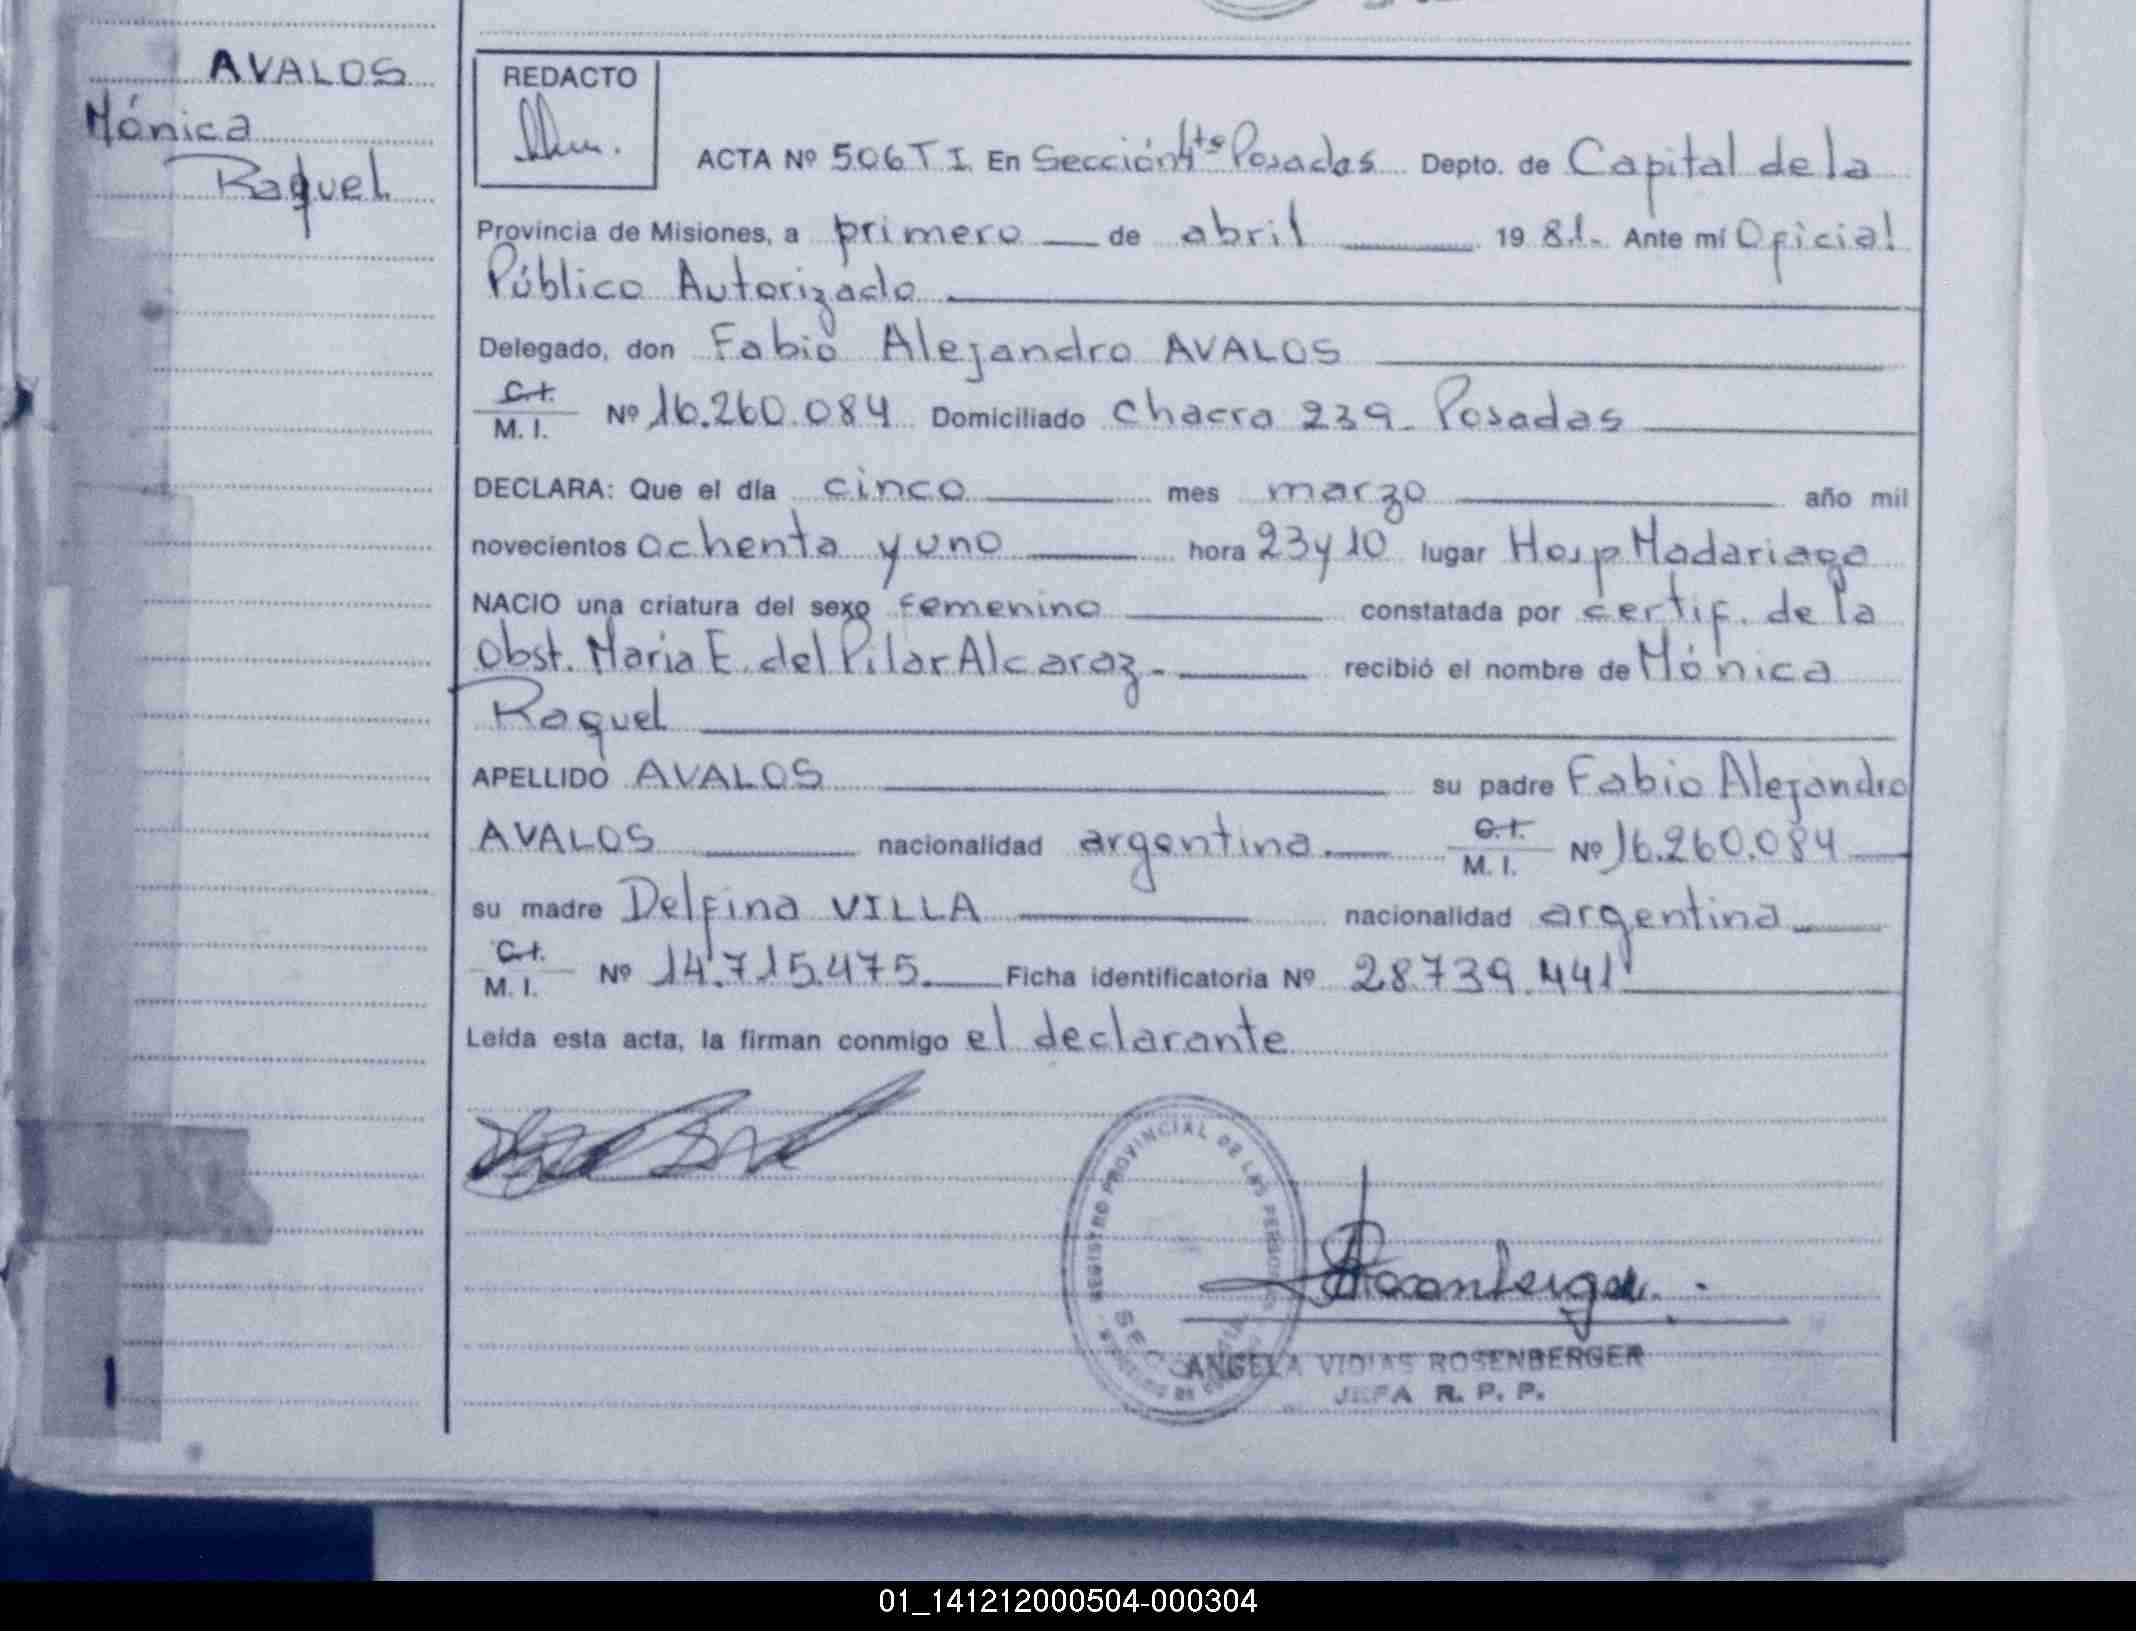 AVALOS
Mónica
Raquel
REDACTO
ACTA Nº 506 T I. En Sección 4ta Posadas Depto. de Capital de la
Provincia de Misiones, a primero de abril 1981. Ante mí Oficial
Público Autorizado
Delegado, don Fabio Alejandro AVALOS
C.I.
M. I. Nº 16.260.084 Domiciliado Chacra 239- Posadas
DECLARA: Que el día cinco mes marzo año mil
novecientos ochenta y uno hora 23 y 10 lugar Hosp. Madariaga
NACIO una criatura del sexo femenino constatada por certif. de la
Obst. María E. del Pilar Alcaraz.- recibió el nombre de Mónica
Raquel
APELLIDO AVALOS su padre Fabio Alejandro
AVALOS nacionalidad argentina. C.I.
M. I. Nº 16.260.084
su madre Delfina VILLA nacionalidad argentina
C.I.
M. I. Nº 14.715.475. Ficha identificatoria Nº 28.739.441
Leída esta acta, la firman conmigo el declarante
REGISTRO PROVINCIAL DE LAS PERSONAS
ANGELA VIDIAS ROSENBERGER
JEFA R. P. P.
01_141212000504-000304